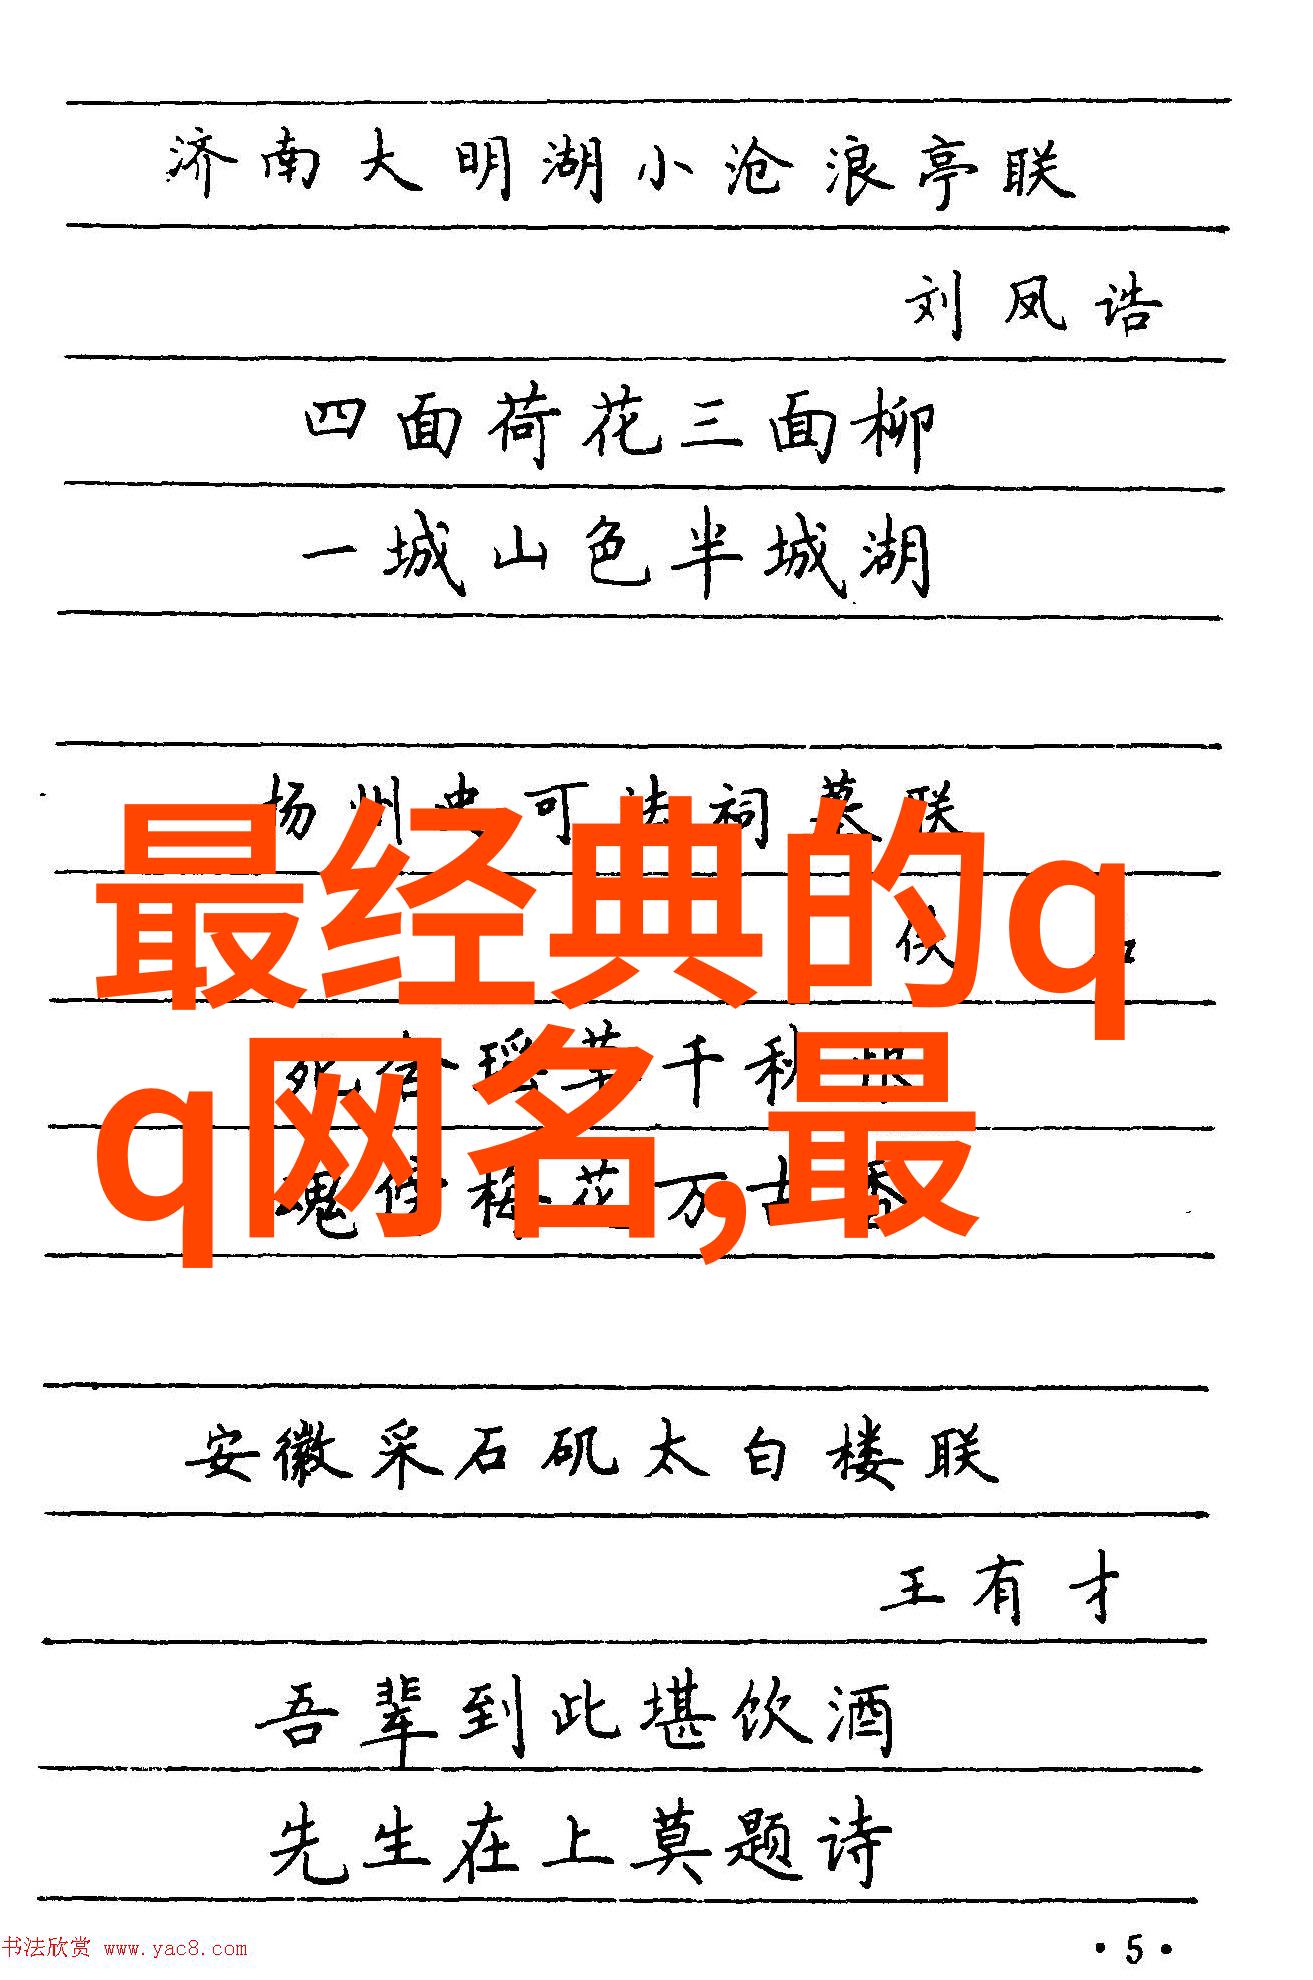 济南大明湖小沧浪亭联
刘凤诰
四面荷花三面柳
一城山色半城湖
扬州史可法祠墓联
最经典的q
侯
瑶草千秋
q网名,最
魂 梅花万古香
安徽采石矶太白楼联
王有才
吾辈到此堪饮酒
先生在上莫题诗
书法欣赏 www.yac8.com
·5·